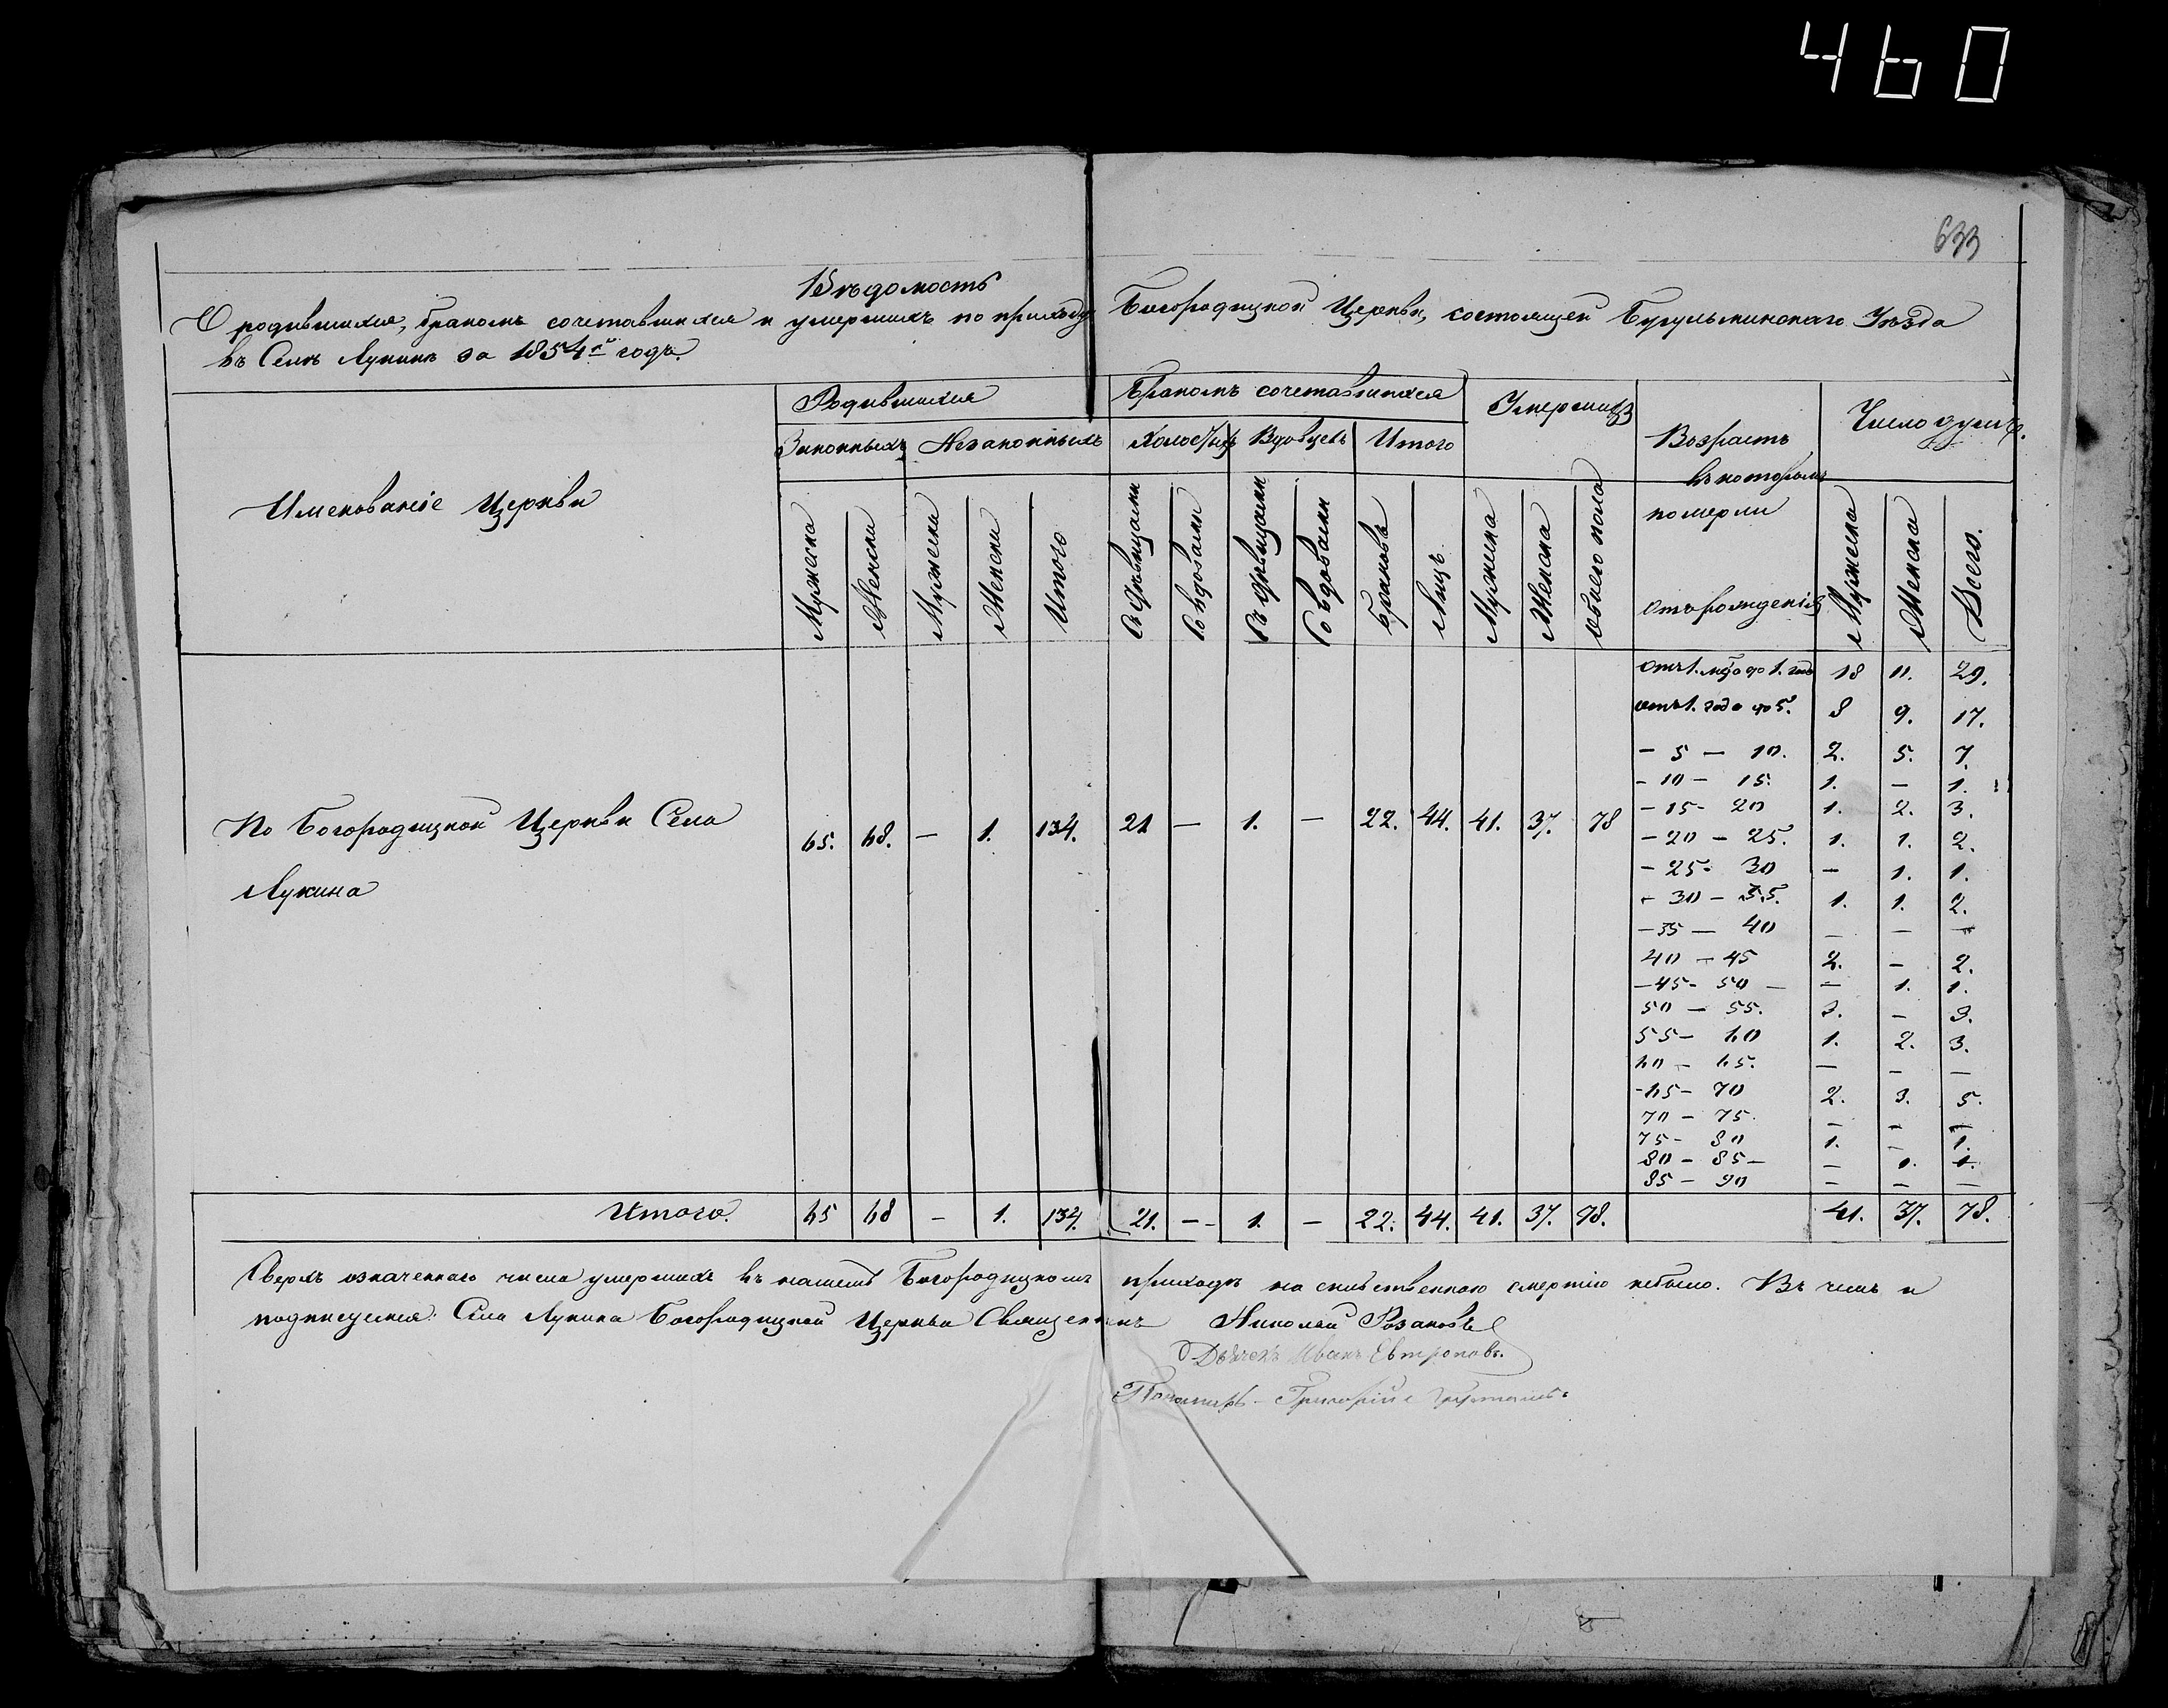 460
633
Вѣдомость
О родившихся, бракомъ сочетавшихся и умершихъ по приходу Богородицкой Церкви, состоящей Бугульминскаго Уѣзда
въ Селѣ Лукинѣ за 1854й годъ.
Именованіе Церкви
Родившихся
Бракомъ сочетавшихся
Умершихъ
Возрастъ въ которомъ померли отъ рожденія
Число душъ.
Законныхъ Незаконныхъ Холостыхъ Вдовцевъ Итого
Мужеска Женска Мужеска Женска Итого Съ дѣвицами Со вдовами Съ дѣвицами Со вдовами Браковъ Лицъ Мужеска Женска Обоего пола Мужеска Женска Всего.
По Богородицкой Церкви Села
Лукина
65. 68. — 1. 134. 21 — 1. — 22. 44. 41. 37. 78
отъ 1. до 1. года 18 11. 29.
отъ 1. года до 5. 8 9. 17.
- 5 — 10. 2. 5. 7.
- 10 — 15. 1. — 1.
- 15 - 20 1. 2. 3.
- 20 - 25. 1. 1. 2.
- 25 - 30 — 1. 1.
- 30 - 35. 1. 1. 2.
- 35 — 40 — — —
40 - 45 2. — 2.
- 45 - 50 — — 1. 1.
50 — 55. 3. — 3.
55 - 60 1. 2. 3.
60 - 65. — — —
- 65 - 70 2. 3. 5.
70 - 75. — — —
75 - 80 1. — 1.
80 - 85 — — 1. 1.
85 - 90 — — —
Итого. 65 68 — 1. 134. 21. — 1. — 22. 44. 41. 37. 78. 41. 37. 78.
Сверхъ означеннаго числа умершихъ въ нашемъ Богородицкомъ приходѣ не смертію небыло. Въ чемъ и
подписуемся. Села Лукина Богородицкой Церкви Священникъ Николай Розановъ
Дьячекъ Иванъ Евтроповъ.
Пономарь - Григорій